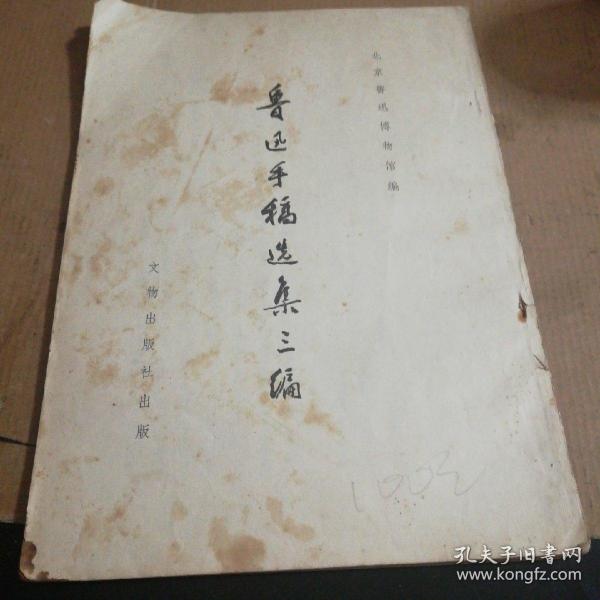 北京鲁迅博物馆编
鲁迅手稿选集三编
文物出版社出版
孔夫子旧书网
www.kongfz.com